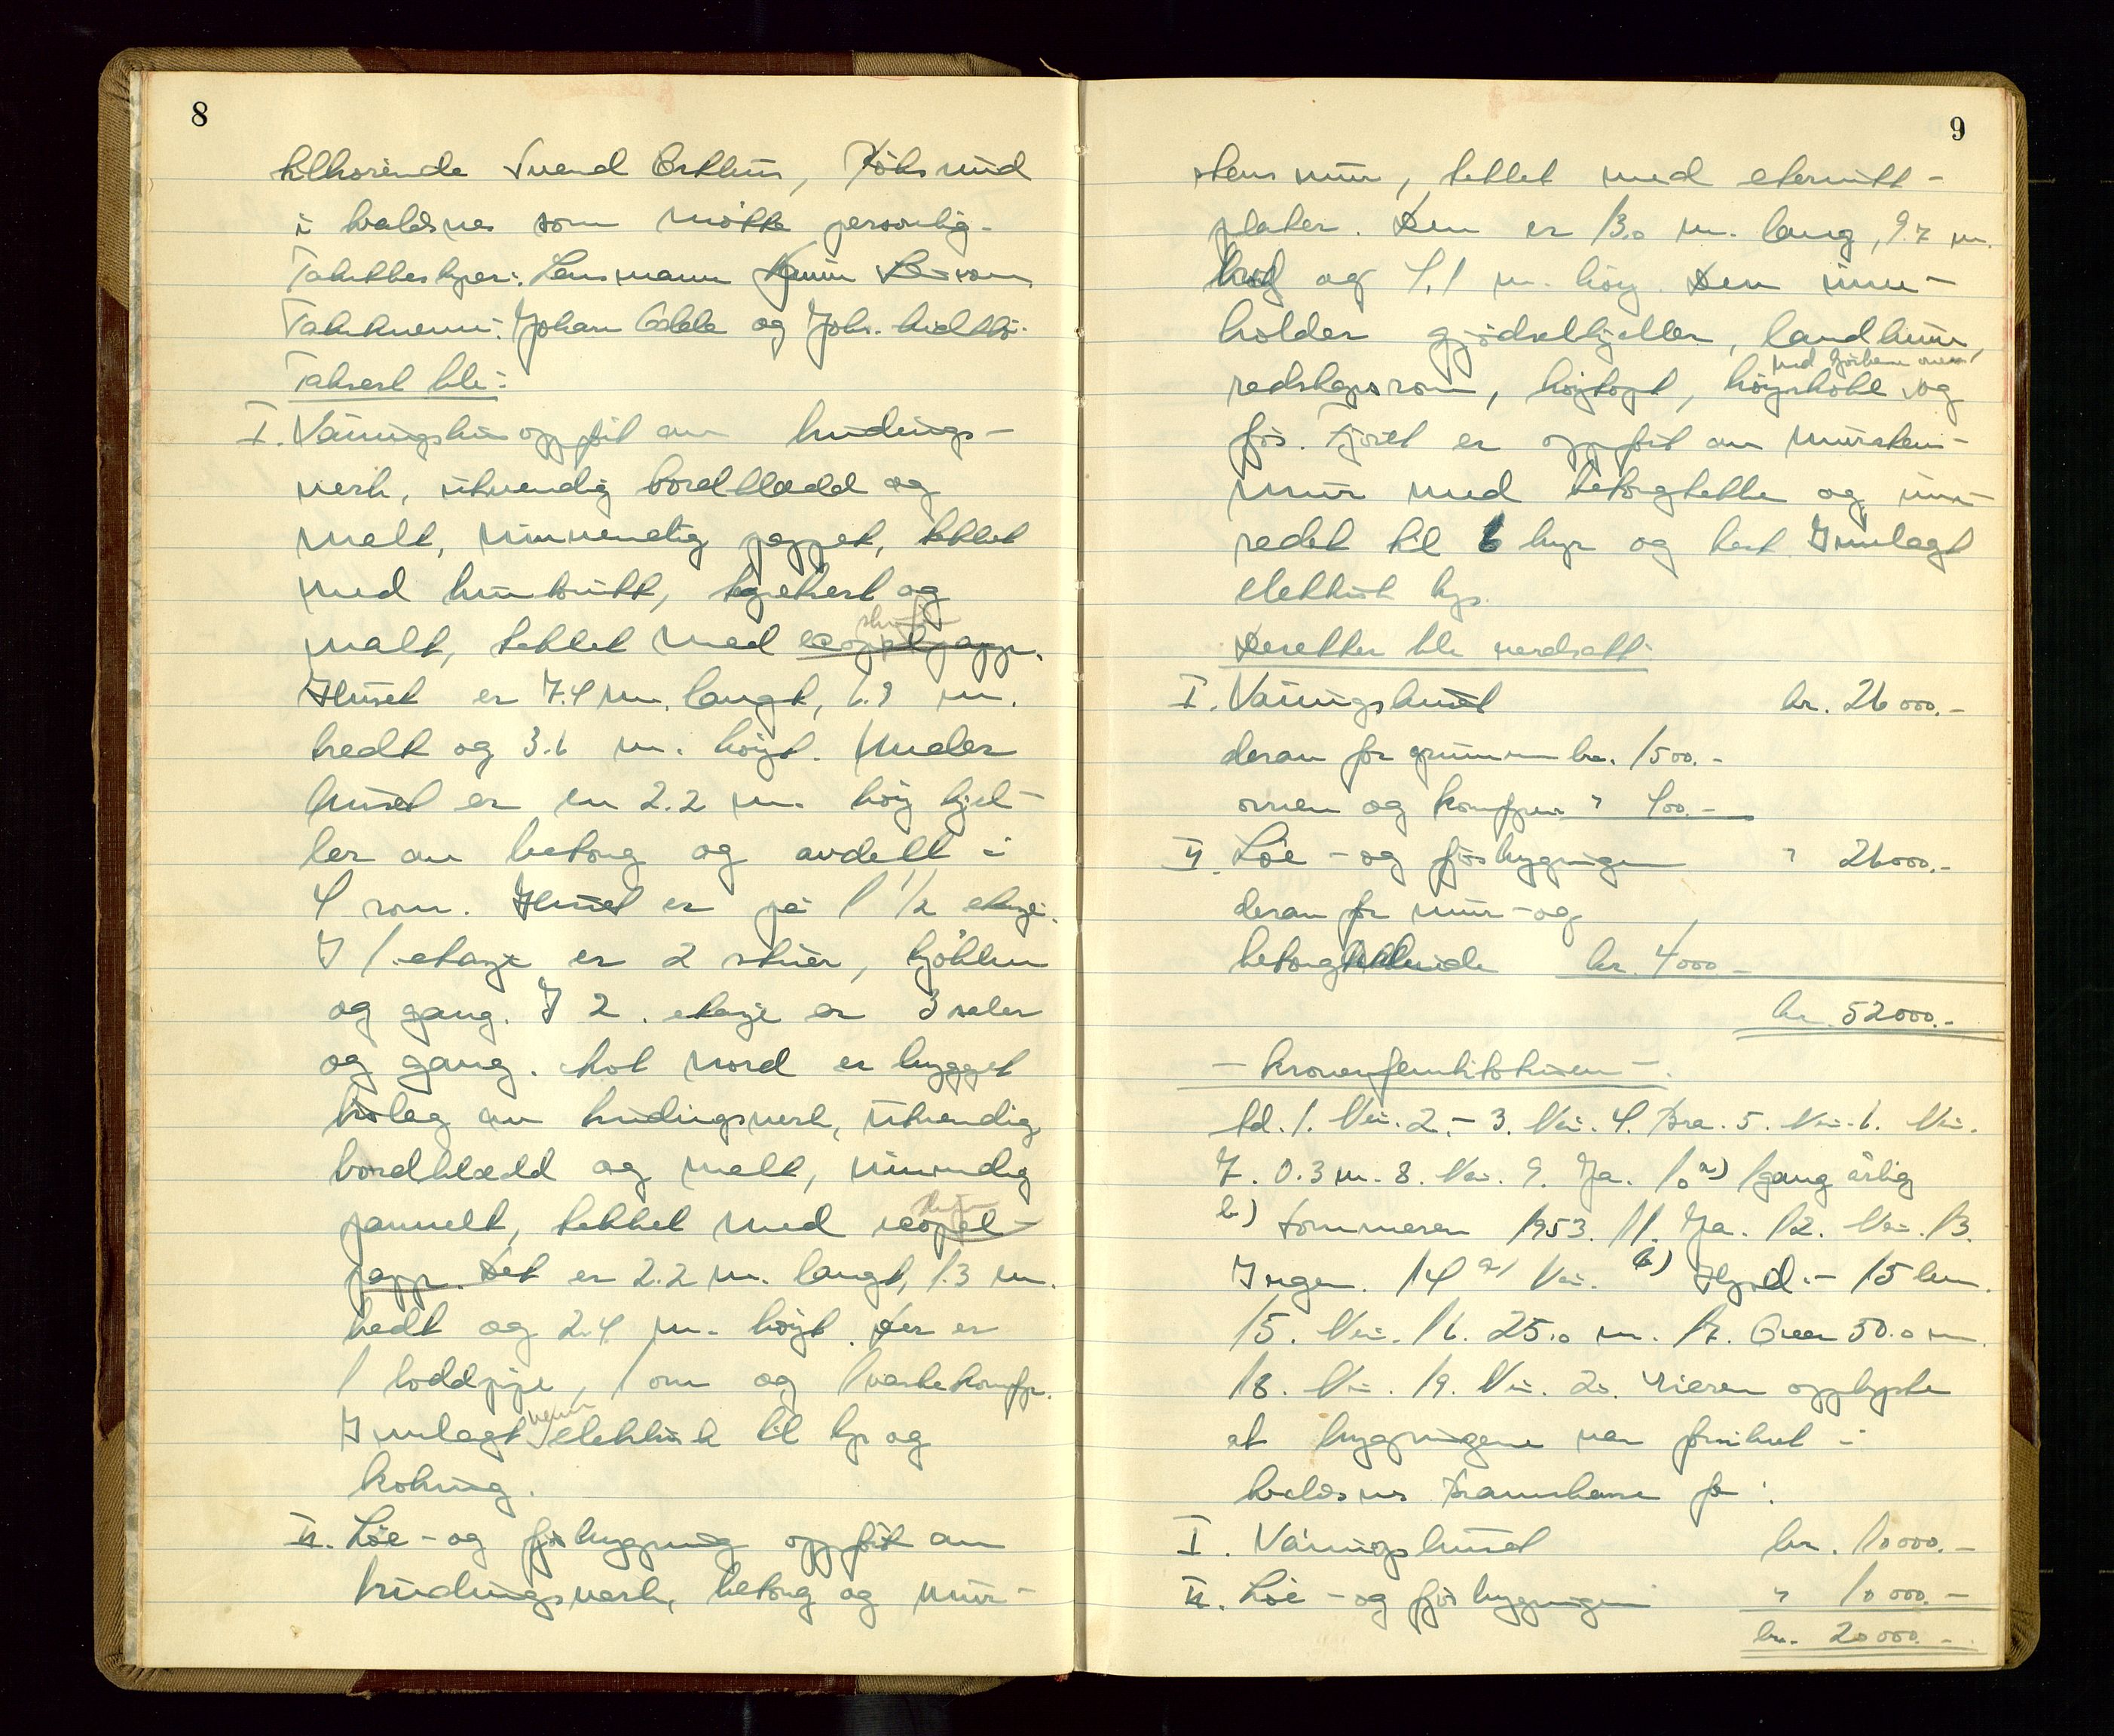 8
tilhørende Svend Østhus, Føksund
i Avaldsnes som møtte personlig.
Takstbestyrer: Lensmann
Takstmenn: Johan Odde og Johs.
Taksert ble:
I. Våningshus oppført av bindings-
verk, utvendig bordkledd og
malt, innvendig pappet, tettet
med huntonitt, tapetsert og
malt, tekket med papp.
skifer
Huset er 7.4 m. langt, 6.9 m.
bredt og 3.6 m. høyt. Under
huset er en 2.2 m. høy kjel-
ler av betong og avdelt i
4 rom. Huset er på 1 1/2 etasje.
I 1. etasje er 2 stuer, kjøkken
og gang. I 2. etasje er 3 saler
og gang. Mot nord er bygget
bislag av bindingsverk, utvendig
bordkledd og malt, innvendig
panelt, tekket med
skifer
papp. Det er 2.2 m. langt, 1.3 m.
bredt og 2.4 m. høyt. Der er
1 loddpipe, 1 ovn og 1 vaskekomfyr.
Innlagt vann elektrisk til lys og
kokning.
II. Løe- og fjøsbygning oppført av
bindingsverk, betong og mur-
9
stens mur, tekket med eternitt-
plater. Den er 13.0 m. lang, 9.7 m.
bred og 4.1 m. høy. Den inne-
holder gjødselkjeller, landkum,
redskapsrom, høytopt, høystål og
med kjørbru over
fjøs. Fjøset er oppført av mursten-
mur med betongdekke og inn-
redet til 6 kyr og hest. Innlagt
elektrisk lys.
Deretter ble verdsatt:
I. Våningshuset kr. 26000.-
derav for grunnmur kr. 1500.-
ovner og komfyrer " 400.-
II. Løe- og fjøsbygningen " 26000.-
derav for mur- og
betongarbeide kr. 4000.-
kr. 52000.-
- kronerfemtitotusen -.
Ad. 1. Nei. 2. - 3. Nei. 4. Bra. 5. Nei. 6. Nei.
7. 0.3 m. 8. Nei. 9. Ja. 10 a) 1 gang årlig
b) Sommeren 1953. 11. Ja. 12. Nei. 13.
Ingen. 14 a) Nei. b) Hyrd.- 15 km.
15. Nei. 16. 25.0 m. 17. Over 50.0 m.
18. Nei. 19. Nei. 20. Eieren opplyste
at bygningene var forsikret i
Avaldsnes Brannkasse for:
I. Våningshuset kr. 10000.-
II. Løe- og fjøsbygningen " 10000.-
kr. 20000.-